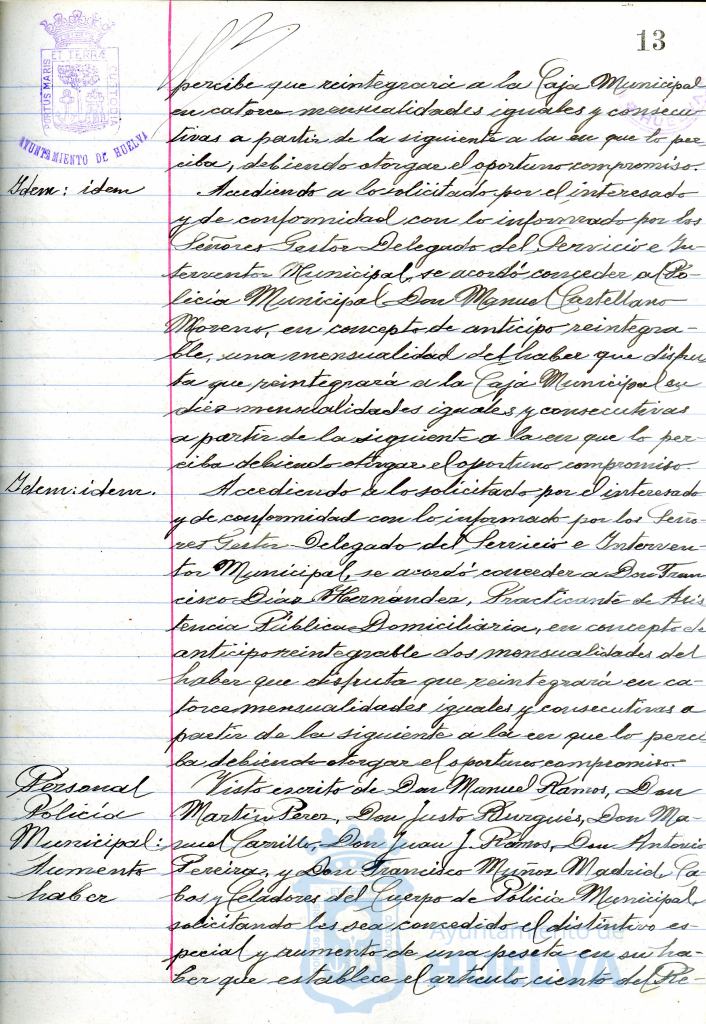 13
PORTUS MARIS ET TERRÆ CUSTODIA
AYUNTAMIENTO DE HUELVA
percibe que reintegrará a la Caja Municipal
en catorce mensualidades iguales y consecu
tivas a partir de la siguiente a la en que lo per
ciba, debiendo otorgar el oportuno compromiso.
Idem: idem
Accediendo a lo solicitado por el interesado
y de conformidad con lo informado por los
Señores Gestor Delegado del Servicio e In-
terventor Municipal, se acordó conceder al Po-
licía Municipal Don Manuel Castellano
Moreno, en concepto de anticipo reintegra-
ble, una mensualidad del haber que disfru
ta que reintegrará a la Caja Municipal en
diez mensualidades iguales y consecutivas
a partir de la siguiente a la en que lo per-
ciba debiendo otorgar el oportuno compromiso.
Idem: idem.
Accediendo a lo solicitado por el interesado
y de conformidad con lo informado por los Seño-
res Gestor Delegado del Servicio e Interven-
tor Municipal, se acordó conceder a Don Fran
cisco Díaz Hernández, Practicante de Asis
tencia Pública Domiciliaria, en concepto de
anticipo reintegrable dos mensualidades del
haber que disfruta que reintegrará en ca-
torce mensualidades iguales y consecutivas a
partir de la siguiente a la en que lo perci
ba debiendo otorgar el oportuno compromiso.
Personal
Policía
Municipal:
Aumento
haber
Visto escrito de Don Manuel Ramos, Don
Martín Perez, Don Justo Burgués, Don Ma-
nuel Carrillo, Don Juan J. Ramos, Don Antonio
Pereira, y Don Francisco Muñoz Madrid, Ca-
bos y Celadores del Cuerpo de Policía Municipal,
solicitando les sea concedido el distintivo es
pecial y aumento de una peseta en su ha-
ber que establece el artículo ciento del Re-
Ayuntamiento de
HUELVA